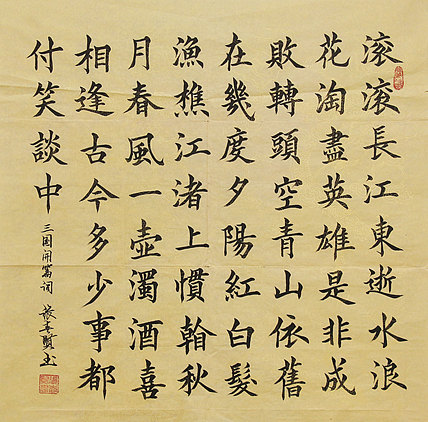 滚滚長江東逝水浪
花淘盡英雄是非成
敗轉頭空青山依舊
在幾度夕陽紅白髮
漁樵江渚上慣翰秋
月春風一壺濁酒喜
相逢古今多少事都
付笑談中
三国開篇词